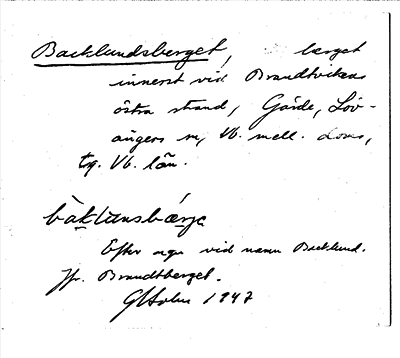 Backlundsberget, berget
innerst vid Brandtvikens
östra strand, Gärde, Löv-
ångers sn, Vb. mell. doms,
tg. Vb. län.
bàklʉnsbærjɛ
Efter ngn vid namn Backlund.
Jfr. Brandtberget.
GHolm 1947